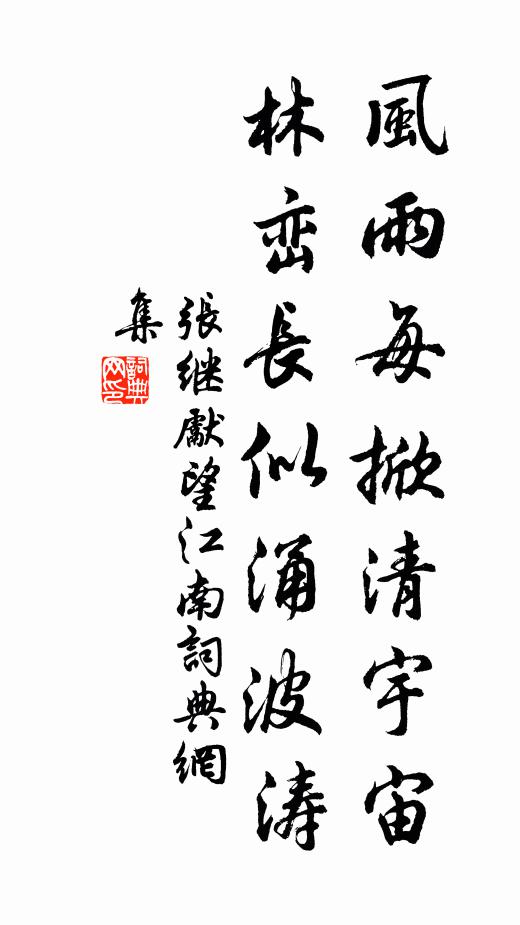 風雨每掀清宇宙
林峦長似涌波涛
張继獻望江南詞典網
集
詞典
网印